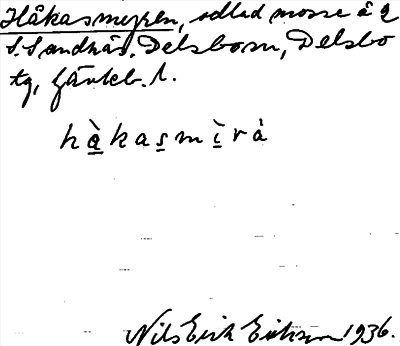 Håkasmyren, odlad mosse å 2
S. Sandnäs. Delsbosn, Delsbo
tg, Gävleb. l.
hàkasmìrå
Nils Erik Erikson 1936.